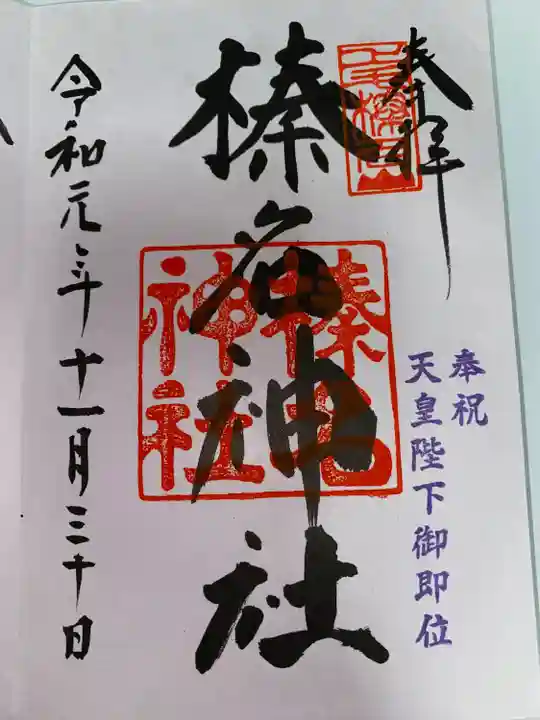 奉拝
奉祝
天皇陛下御即位
榛名神社
榛名
神社
令和元年十一月三十日